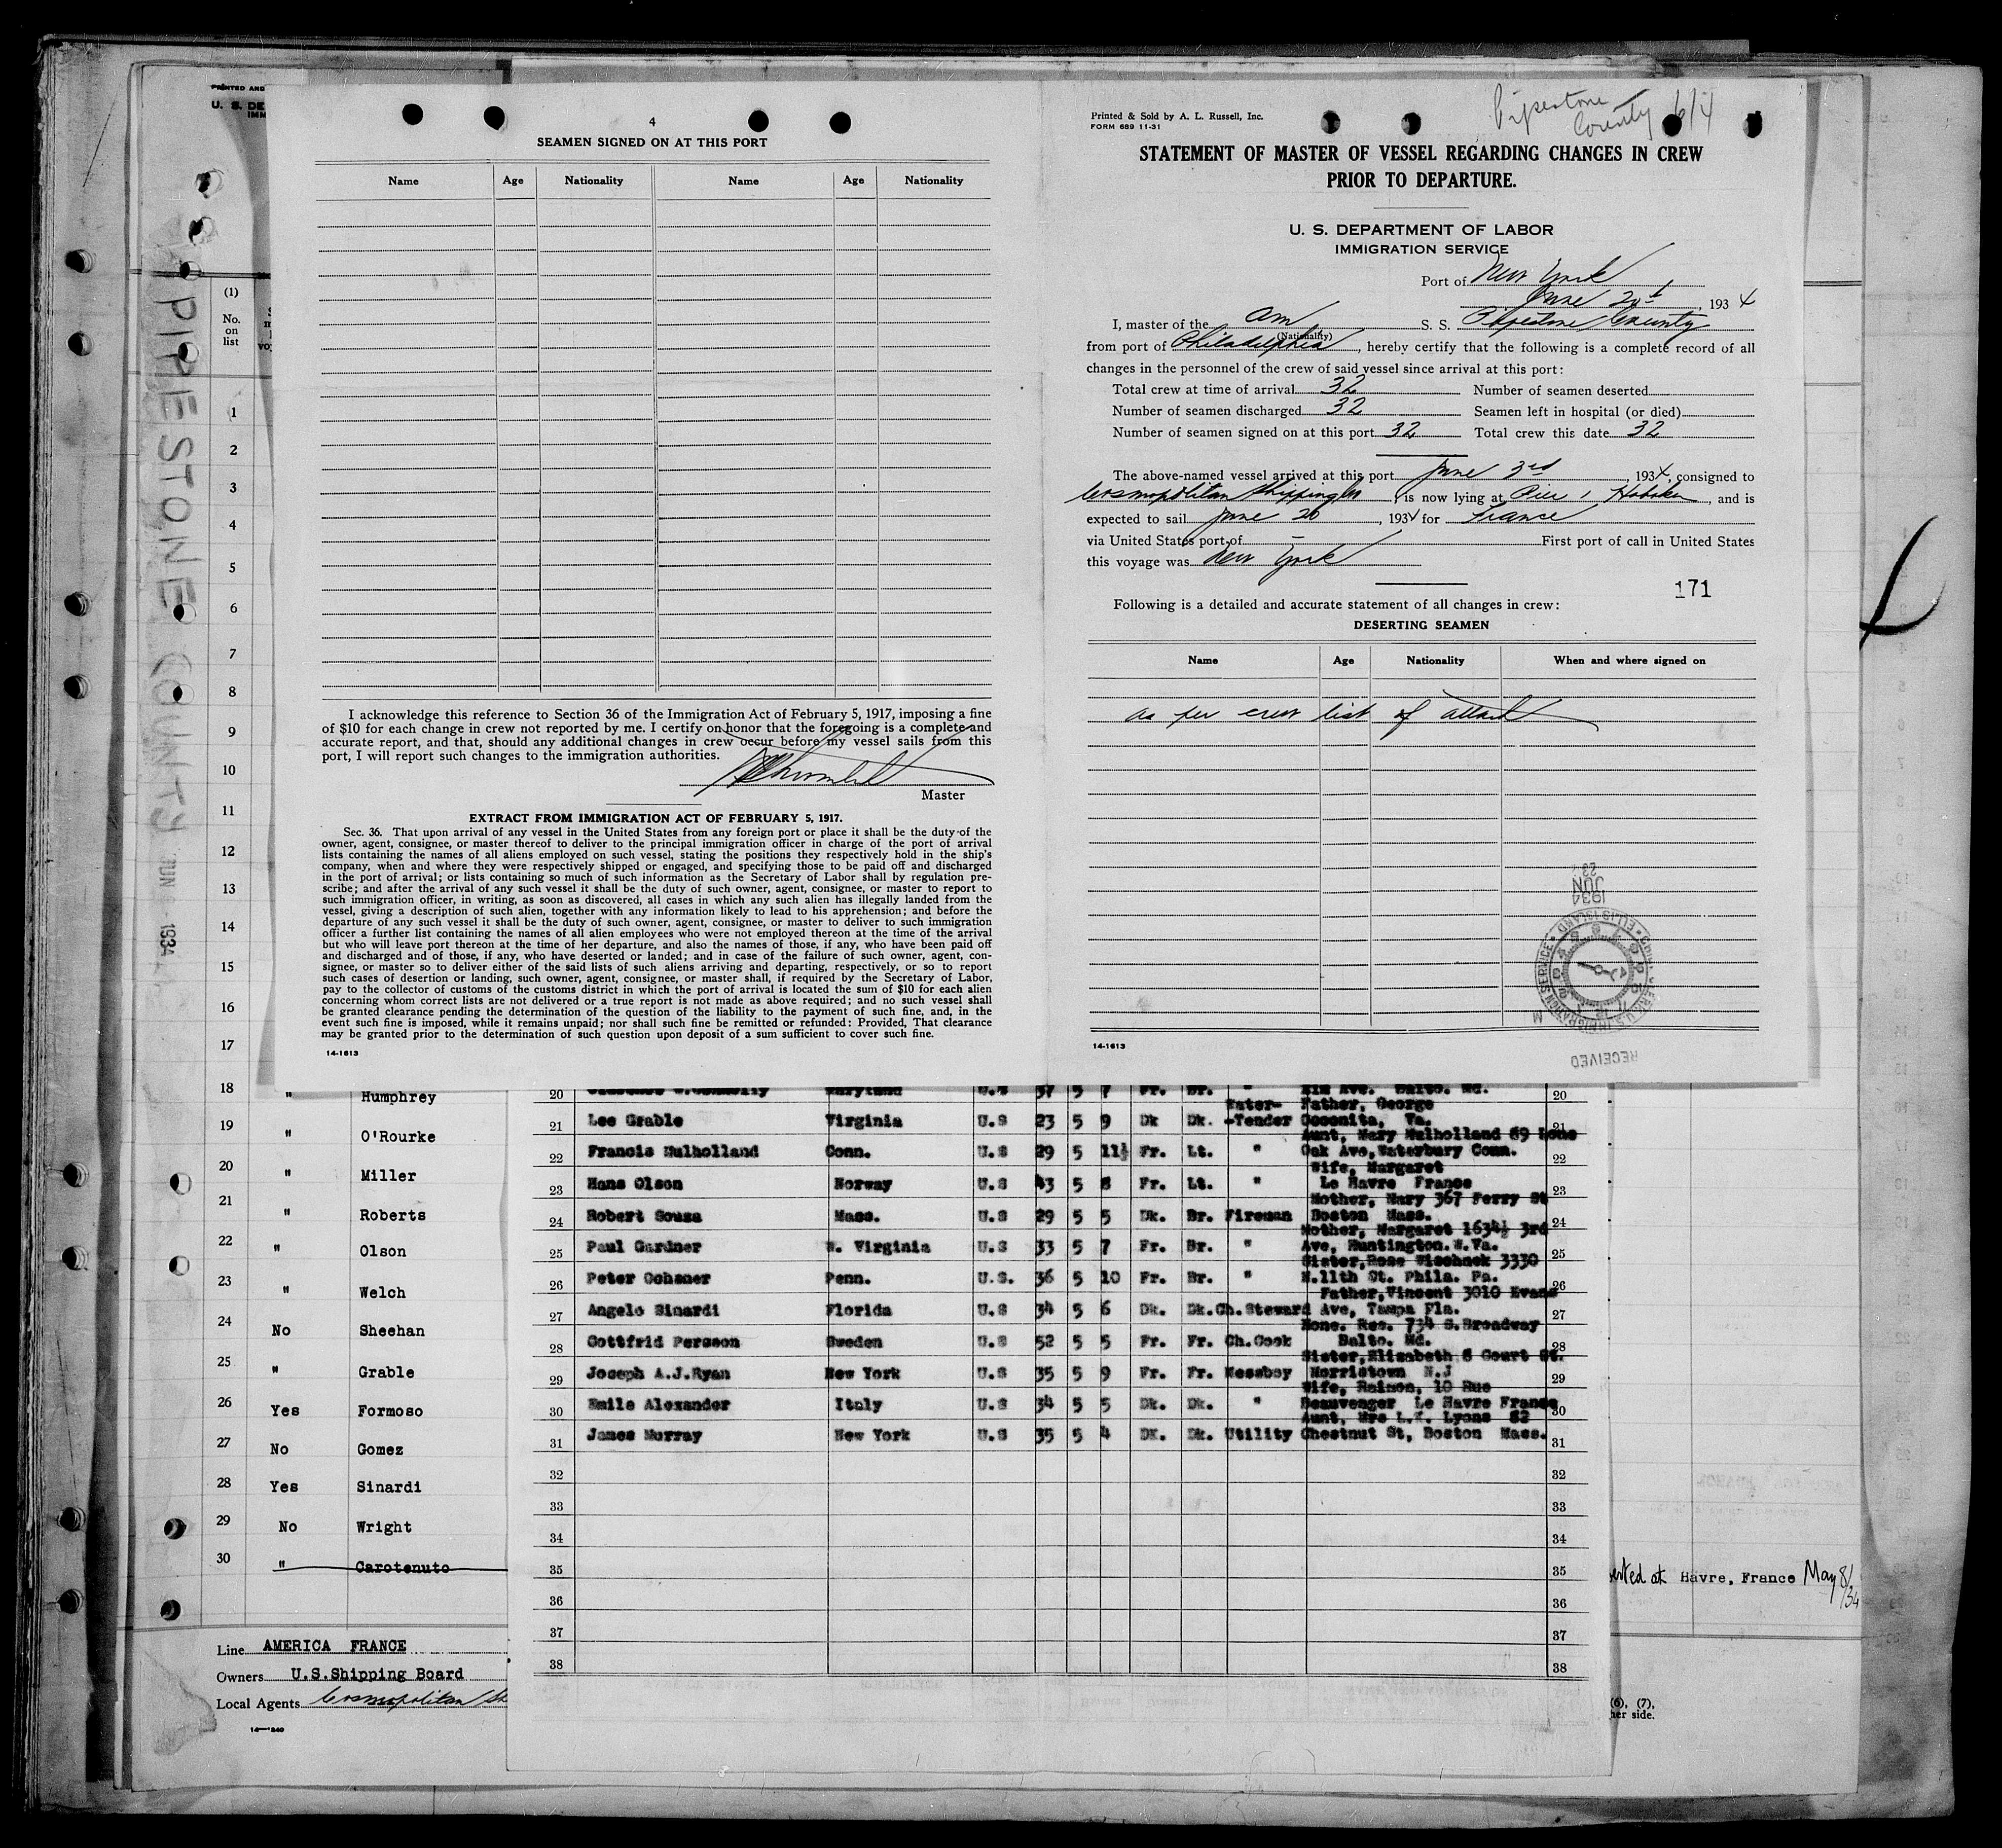 PRINTED AND
U. S. DE
IMM
PIPESTONE COUNTY
JUN 1934
(1)
No.
on
list
1
2
3
4
5
6
7
8
9
10
11
12
13
14
15
16
17
4
SEAMEN SIGNED ON AT THIS PORT
Name Age Nationality Name Age Nationality
I acknowledge this reference to Section 36 of the Immigration Act of February 5, 1917, imposing a fine
of $10 for each change in crew not reported by me. I certify on honor that the foregoing is a complete and
accurate report, and that, should any additional changes in crew occur before my vessel sails from this
port, I will report such changes to the immigration authorities.
Master
EXTRACT FROM IMMIGRATION ACT OF FEBRUARY 5, 1917.
Sec. 36. That upon arrival of any vessel in the United States from any foreign port or place it shall be the duty of the
owner, agent, consignee, or master thereof to deliver to the principal immigration officer in charge of the port of arrival
lists containing the names of all aliens employed on such vessel, stating the positions they respectively hold in the ship's
company, when and where they were respectively shipped or engaged, and specifying those to be paid off and discharged
in the port of arrival; or lists containing so much of such information as the Secretary of Labor shall by regulation pre-
scribe; and after the arrival of any such vessel it shall be the duty of such owner, agent, consignee, or master to report to
such immigration officer, in writing, as soon as discovered, all cases in which any such alien has illegally landed from the
vessel, giving a description of such alien, together with any information likely to lead to his apprehension; and before the
departure of any such vessel it shall be the duty of such owner, agent, consignee, or master to deliver to such immigration
officer a further list containing the names of all alien employees who were not employed thereon at the time of the arrival
but who will leave port thereon at the time of her departure, and also the names of those, if any, who have been paid off
and discharged and of those, if any, who have deserted or landed; and in case of the failure of such owner, agent, con-
signee, or master so to deliver either of the said lists of such aliens arriving and departing, respectively, or so to report
such cases of desertion or landing, such owner, agent, consignee, or master shall, if required by the Secretary of Labor,
pay to the collector of customs of the customs district in which the port of arrival is located the sum of $10 for each alien
concerning whom correct lists are not delivered or a true report is not made as above required; and no such vessel shall
be granted clearance pending the determination of the question of the liability to the payment of such fine, and, in the
event such fine is imposed, while it remains unpaid; nor shall such fine be remitted or refunded: Provided, That clearance
may be granted prior to the determination of such question upon deposit of a sum sufficient to cover such fine.
14-1613
Pipestone
County 6/4
Printed & Sold by A. L. Russell, Inc.
FORM 689 11-31
STATEMENT OF MASTER OF VESSEL REGARDING CHANGES IN CREW
PRIOR TO DEPARTURE.
U. S. DEPARTMENT OF LABOR
IMMIGRATION SERVICE
Port of New York
June 20th, 1934
I, master of the Am S. S. Pipestone County
(Nationality)
from port of Philadelphia, hereby certify that the following is a complete record of all
changes in the personnel of the crew of said vessel since arrival at this port:
Total crew at time of arrival 32 Number of seamen deserted
Number of seamen discharged 32 Seamen left in hospital (or died)
Number of seamen signed on at this port 32 Total crew this date 32
The above-named vessel arrived at this port June 3rd, 1934, consigned to
Cosmopolitan Shipping Co, is now lying at Pier 1 Hoboken, and is
expected to sail June 20, 1934 for France
via United States port of - First port of call in United States
this voyage was New York
171
Following is a detailed and accurate statement of all changes in crew:
DESERTING SEAMEN
Name Age Nationality When and where signed on
as per crew list
14-1613
RECEIVED
U.S. IMMIGRATION SERVICE
ELLIS ISLAND
1934
JUN
23
18 " Humphrey
19 " O'Rourke
20 " Miller
21 " Roberts
22 " Olson
23 " Welch
24 No Sheehan
25 " Grable
26 Yes Formoso
27 No Gomez
28 Yes Sinardi
29 No Wright
30 " Carotenuto
Line AMERICA FRANCE
Owners U.S.Shipping Board
Local Agents Cosmopolitan Sh
20 Maryland U.S 37 5 7 Fr. Br. " Elm Ave. Balto. Md. 20
Water- Father, George
21 Lee Grable Virginia U.S 23 5 9 Dk Dk. -Tender Va. 21
Aunt, Mary Mulholland 69 Lone
22 Francis Mulholland Conn. U.S 29 5 11½ Fr. Lt. " Oak Ave, Waterbury Conn. 22
Wife, Margaret
23 Hans Olson Norway U.S 43 5 8 Fr. Lt. " Le Havre France 23
Mother, Mary 367 Ferry St
24 Robert Souza Mass. U.S 29 5 5 Dk. Br. Fireman Boston Mass. 24
Mother, Margaret 1634½ 3rd
25 Paul Gardner W. Virginia U.S 33 5 7 Fr. Br. " Ave, Huntington.W.Va. 25
Sister, Rose 3330
26 Peter Ochsner Penn. U.S. 36 5 10 Fr. Br. " N.11th St. Phila. Pa. 26
Father, Vincent 3010 Evans
27 Angelo Sinardi Florida U.S 34 5 6 Dk. Dk. Ch.Steward Ave, Tampa Fla. 27
None. Res. 734 S.Broadway
28 Gottfrid Persson Sweden U.S 52 5 5 Fr. Fr. Ch.Cook Balto. Md. 28
Sister, Elizabeth 8 Court St.
29 Joseph A.J.Ryan New York U.S 35 5 9 Fr. Fr. Messboy Morristown N.J 29
Wife, 10 Rue
30 Emile Alexander Italy U.S 34 5 5 Dk. Dk. " Beauvenger Le Havre France 30
Aunt, Mrs L.K. Lyons 82
31 James Murray New York U.S 35 5 4 DK. Dk. Utility Chestnut St, Boston Mass. 31
32 32
33 33
34 34
35 35
36 36
37 37
38 38
erted at Havre, France May 8/34
(6), (7),
her side.